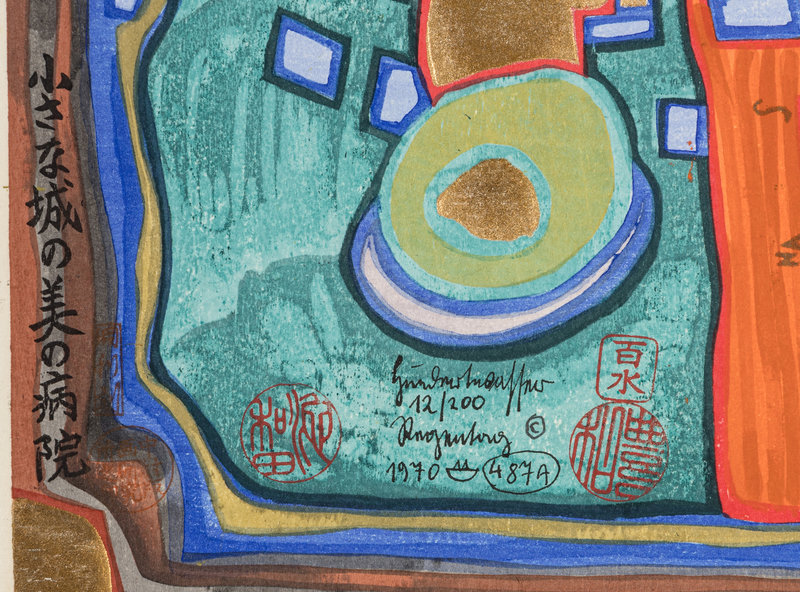 小さな城の美の病院
Hundertwasser
12/200
Regentag ©
1970 487A
百水